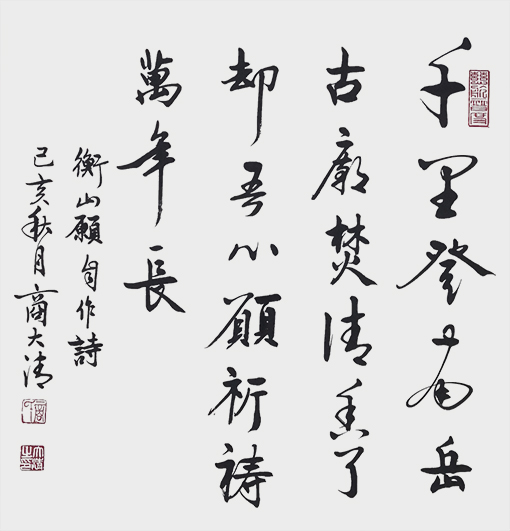 千里登南岳
古廟焚清香了
却吾心願祈禱
萬年長
衡山願自作詩
己亥秋月商大清